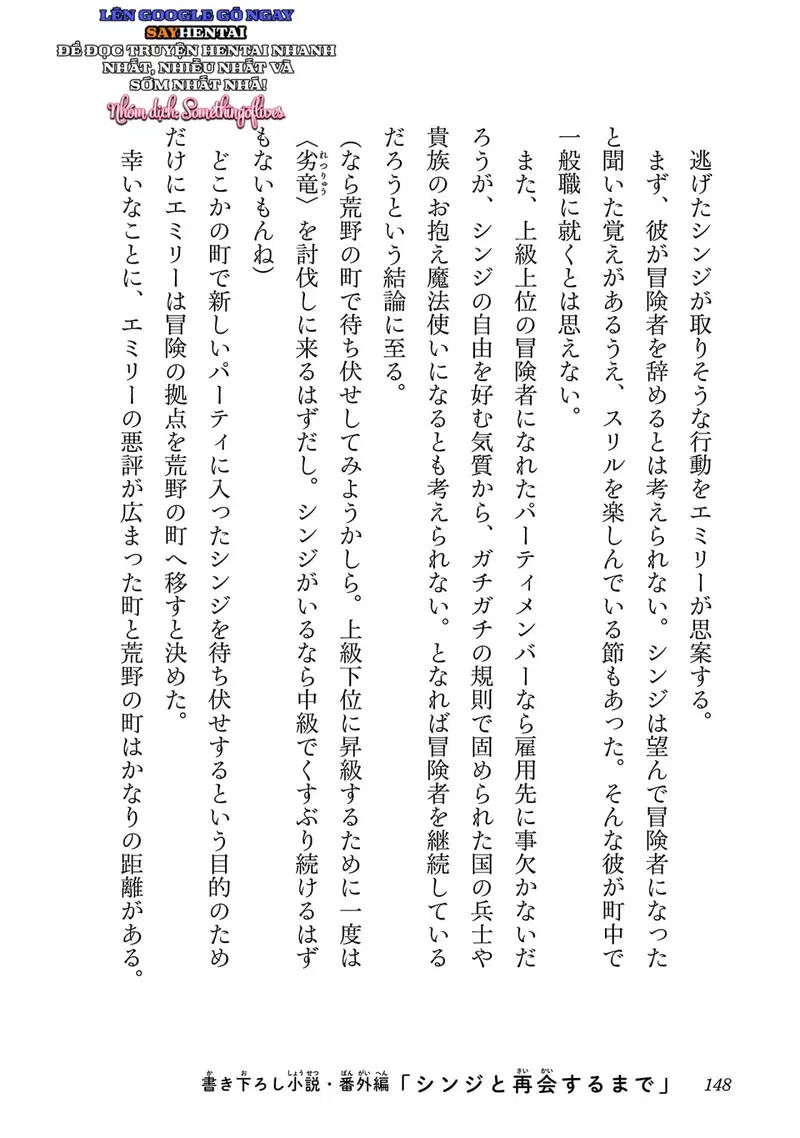 LÊN GOOGLE GÕ NGAY
SAYHENTAI
ĐỂ ĐỌC TRUYỆN HENTAI NHANH
NHẤT, NHIỀU NHẤT VÀ
SỚM NHẤT NHÁ!
Nhóm dịch: Somethingoflaves
逃げたシンジが取りそうな行動をエミリーが思案する。
まず、彼が冒険者を辞めるとは考えられない。シンジは望んで冒険者になった
と聞いた覚えがあるうえ、スリルを楽しんでいる節もあった。そんな彼が町中で
一般職に就くとは思えない。
また、上級上位の冒険者になれたパーティメンバーなら雇用先に事欠かないだ
ろうが、シンジの自由を好む気質から、ガチガチの規則で固められた国の兵士や
貴族のお抱え魔法使いになるとも考えられない。となれば冒険者を継続している
だろうという結論に至る。
(なら荒野の町で待ち伏せしてみようかしら。上級下位に昇級するために一度は
〈劣竜〉を討伐しに来るはずだし。シンジがいるなら中級でくすぶり続けるはず
れつりゅう
もないもんね)
どこかの町で新しいパーティに入ったシンジを待ち伏せするという目的のため
だけにエミリーは冒険の拠点を荒野の町へ移すと決めた。
幸いなことに、エミリーの悪評が広まった町と荒野の町はかなりの距離がある。
書き下ろし小説・番外編「シンジと再会するまで」
か お しょうせつ ばんがいへん さいかい
148